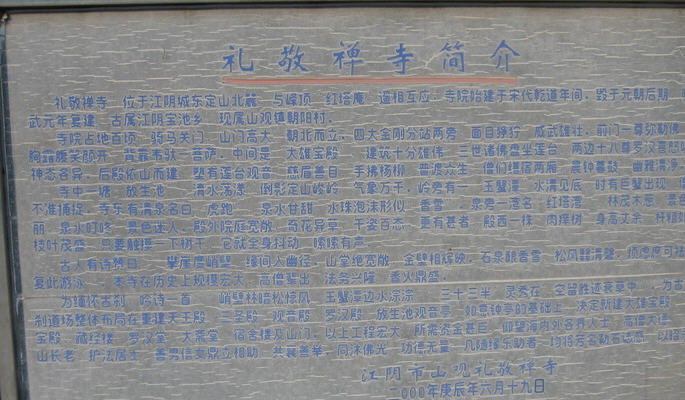 礼敬禅寺简介
礼敬禅寺 位于江阴城东定山北麓 与峰顶 红塔庵 遥相互应 寺院始建于宋代乾道年间 毁于元朝后期
武元年复建 古属江阴宝池乡 现属山观镇朝阳村
寺院占地百顷 骑马关门 山门高大 朝北而立 四大金刚分站两旁 面目狰狞 威武雄壮 前门一尊弥勒佛
胸露腹笑颜开 背靠韦驮 菩萨 中间是 大雄宝殿 建筑十分雄伟 三世诸佛盘坐莲台 两边十八尊罗汉喜怒
神态各异 后殿依山而建 塑有莲台观音 慈后善目 手拂杨柳 普渡众生 僧们缠宿两厢 晨钟暮鼓 幽雅清净
寺中一塘 放生池 清水荡漾 倒影定山峻岭 气象万千 岭旁有一 玉蟹潭 水清见底 时有巨蟹出现
不准捕捉 寺东有清泉名曰 虎跑 泉水甘甜 水珠泡沫形似 香雪 泉旁一湾名 红塔湾 林茂木葱 景色
丽 泉水叮咚 景色迷人 殿外院庭宽敞 奇花异草 千姿百态 更有甚者 殿西一株 肉痒树 身高丈余
枝叶茂盛 只要触摸一下树干 它就全身抖动 嗦嗦有声
古人有诗赞曰 攀崖度峭壁 缘间入幽径 山堂绝宽敞 金壁相辉映 石泉酿香雪 松风翳清磬 烦虑庶可祛
复此游泳 本寺在历史上规模宏大 高僧辈出 法务兴隆 香火鼎盛
为缅怀古刹 吟诗一首 峭壁林暗松惊风 玉蟹潭边水淙淙 三十三半 灵秀在 空留胜迹衰草中 为古
刹道场整体布局在重建天王殿 三圣殿 观音殿 罗汉殿 放生池观音亭 如意钟亭的基础上 决定新建大雄宝殿
宝殿 藏经楼 罗汉堂 大荒堂 宿舍楼及山门 以上工程宏大 所需资金甚巨 仰望海内外各界人士 高僧大德
山长老 护法居士 善男信女鼎立相助 共襄善举 同沐佛光 功德无量 凡随缘乐助者 均将芳名勒石试感
江阴市山观礼敬禅寺
二000年庚辰年六月十九日